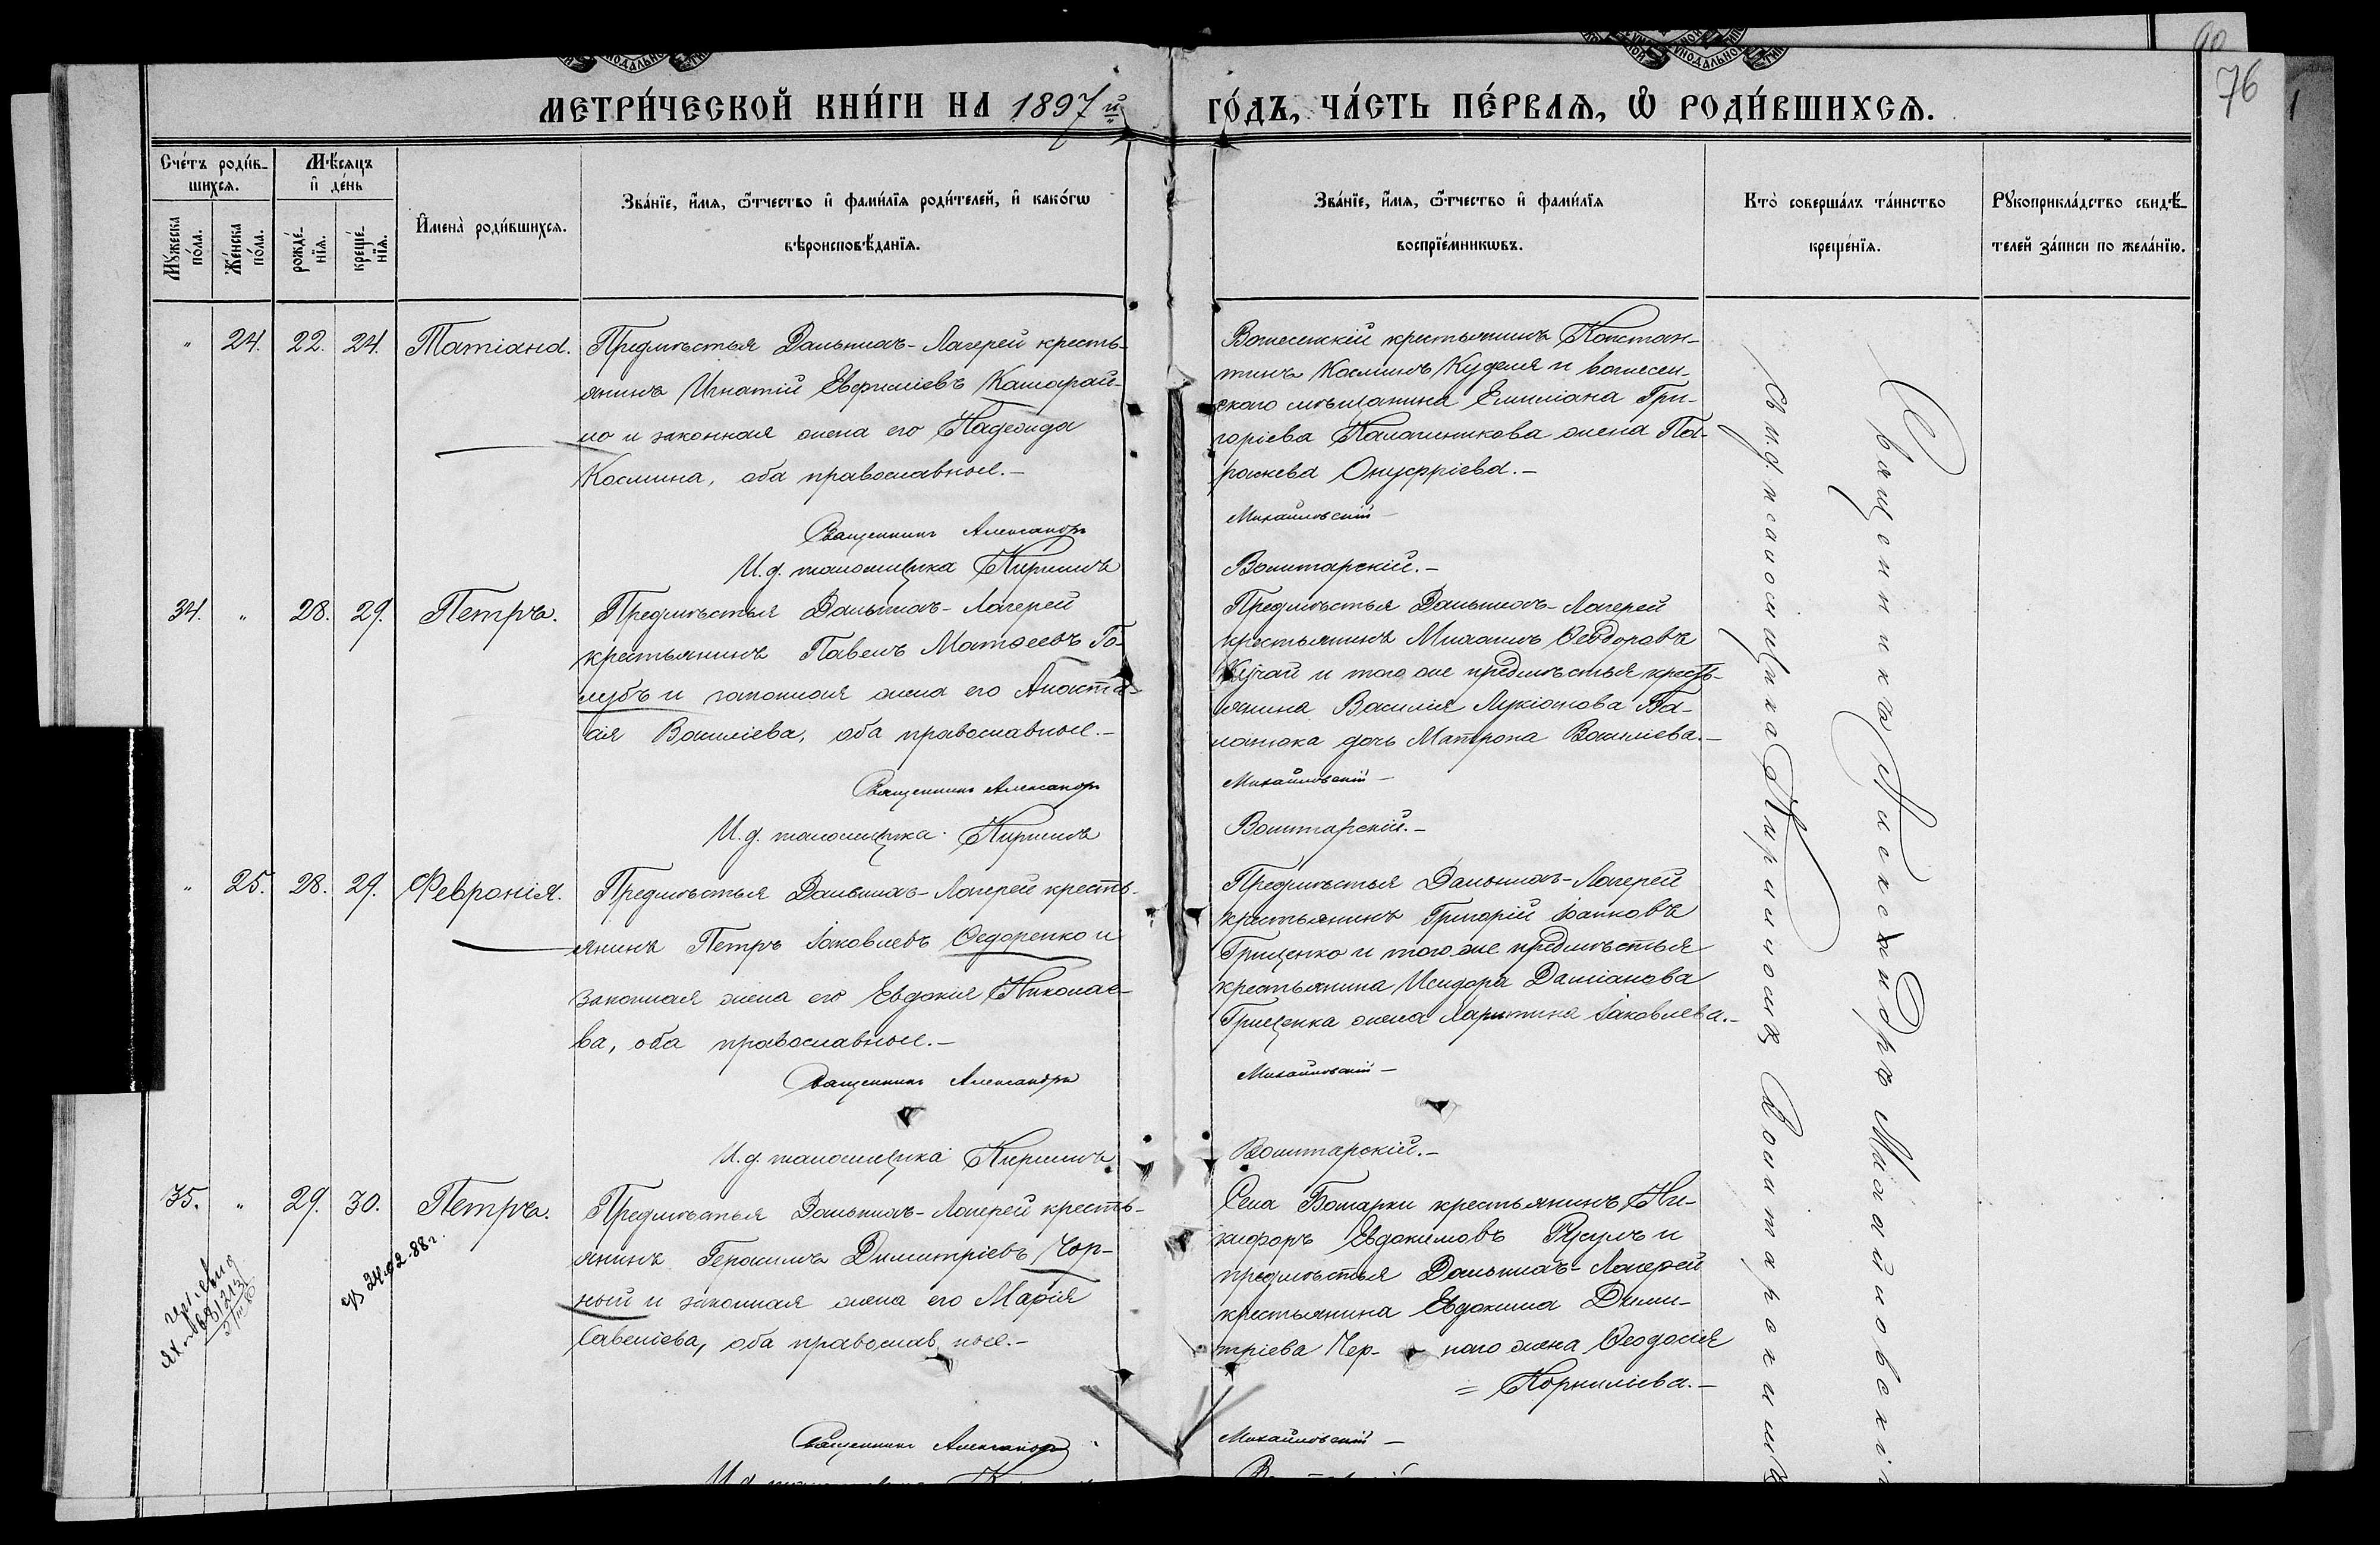 МЕТРИ́ЧЕСКОЙ КНИ́ГИ НА 1897 й ГО́ДЪ, ЧА́СТЬ ПЕ́РВАѦ, Ѡ҆ РОДИ́ВШИХСѦ.
76
Сче́тъ роди́в-
шихсѧ.
Мꙋ́жеска по́ла.
Же́нска по́ла.
Мѣ́сѧцъ и҆ де́нь
рожде́-нїѧ.
креще́-нїѧ.
И҆мена̀ роди́вшихсѧ.
Зва́нїе, и҆́мѧ, ѻ҆́тчество и҆ фами́лїѧ роди́телей, и҆ како́гѡ
вѣроисповѣ́данїѧ.
Зва́нїе, и҆́мѧ, ѻ҆́тчество и҆ фами́лїѧ
воспрїе́мникѡвъ.
Кто̀ соверша́лъ та́инство
креще́нїѧ.
Рꙋкоприкла́дство свидѣ́-
телей за́писи по жела́нїю.
" 24. 22. 24. Татіана.
Предмѣстья Дальнихъ-Лагерей кресть-
янинъ Игнатій Евфиміевъ
и законная жена его Надежда
Космина, оба православные.-
Священникъ Александръ
И. д. псаломщика Кириллъ
Вознесенскій крестьянинъ Констан-
тинъ Косминъ Куделя и вознесен-
скаго мѣщанина Емиліана Гри-
горіева Калашникова жена Па-
раскева Онуфріева.-
Михайловскій -
Войтарскій.-
34. " 28. 29. Петръ.
Предмѣстья Дальнихъ-Лагерей
крестьянинъ Павелъ Матѳеевъ Го-
лубъ и законная жена его Анаста-
сія Василіева, оба православные.-
Священникъ Александръ
И. д. псаломщика Кириллъ
Предмѣстья Дальнихъ-Лагерей
крестьянинъ Михаилъ Ѳеодоровъ
и того же предмѣстья кресть-
янина Василія Лукіанова
дочь Матрона Василіева.-
Михайловскій -
Войтарскій.-
" 25. 28. 29. Февронія.
Предмѣстья Дальнихъ-Лагерей кресть-
янинъ Петръ Іаковлевъ Ѳедоренко и
законная жена его Евдокія Николае-
ва, оба православные.-
Священникъ Александръ
И. д. псаломщика Кириллъ
Предмѣстья Дальнихъ-Лагерей
крестьянинъ Григорій Іоанновъ
Грищенко и того же предмѣстья
крестьянина Исидора Даміанова
Грищенка жена Харитина Іаковлева.-
Михайловскій -
Войтарскій.-
35. " 29. 30. Петръ.
Предмѣстья Дальнихъ-Лагерей кресть-
янинъ Герасимъ Димитріевъ Чор-
ный и законная жена его Марія
Савеліева, оба православные.-
Священникъ Александръ
Села Бѣларки крестьянинъ Ни-
кифоръ Евдокимовъ и
предмѣстья Дальнихъ-Лагерей
крестьянина Евдокима Дими-
тріева Чер- наго жена Ѳеодосія
= Корниліева.-
Михайловскій -
Священникъ Александръ Михайловскій
Съ и. д. псаломщика Кирилломъ Войтарскимъ